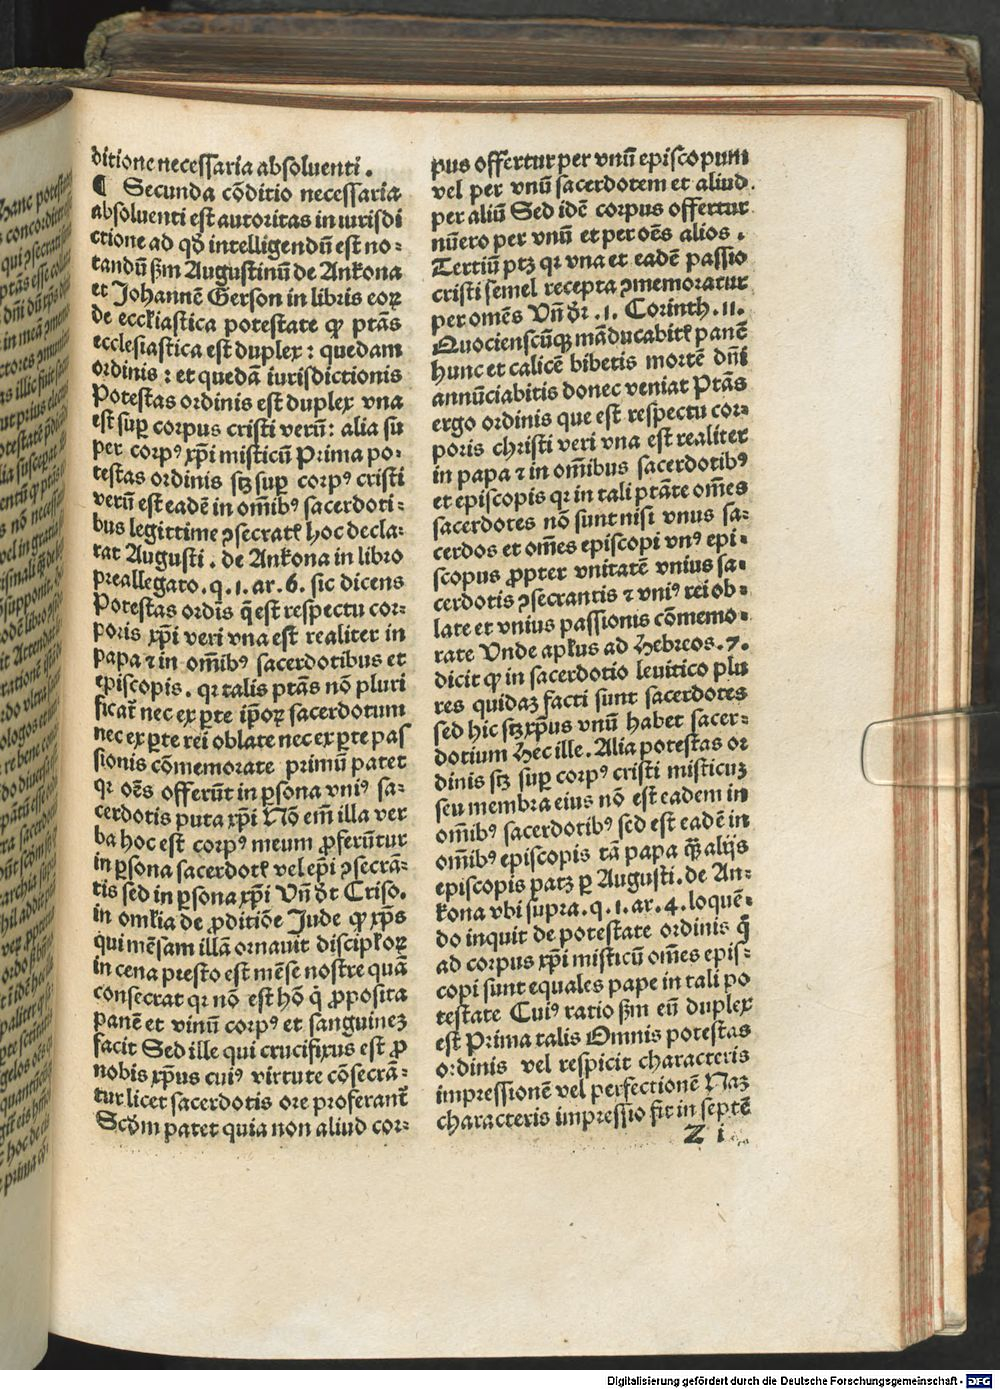 ditione necessaria absoluenti .
¶ Secunda cōditio necessaria
absoluenti est autoritas in iurisdi
ctione ad qđ intelligendū est no⸗
tandū ßm Augustinū de Ankona
et Johannē Gerson in libris eoꝝ
de eccłiastica potestate ꝙ ptās
ecclesiastica est duplex : quedam
ordinis : et quedā iurisdictionis
Potestas ordinis est duplex vna
est suꝑ corpus cristi verū: alia su
per corpꝰ xp̄i misticū Prima po⸗
testas ordinis sꝫ suꝑ corpꝰ cristi
verū est eadē in om̄ibꝰ sacerdoti⸗
bus legittime ꝯsecratꝭ hoc decla⸗
rat Augusti . de Ankona in libro
preallegato . q . 1 . ar . 6 . sic dicens
Potestas ordīs q̄ est respectu cor⸗
poris xp̄i veri vna est realiter in
papa ⁊ in om̄ibꝰ sacerdotibus et
episcopis . qꝛ talis ptās nō pluri
ficat̄ nec ex ꝑte ip̄oꝝ sacerdotum
nec ex ꝑte rei oblate nec ex ꝑte pas
sionis cōmemorate primū patet
qꝛ oēs offerūt in ꝑsona vniꝰ sa⸗
cerdotis puta xp̄i Nō em̄ illa ver
ba hoc est corpꝰ meum ꝓferūtur
in ꝑsona sacerdotꝭ vel ep̄i ꝯsecrā⸗
tis sed in ꝑsona xp̄i Vn̄ đt Criso.
in omłia de ꝓditiōe Jude ꝙ xp̄s
qui mēsam illā ornauit discipłoꝝ
in cena presto est mēse nostre quā
consecrat qꝛ nō est hō q̇ ꝓposita
panē et vinū corpꝰ et sanguineꝫ
facit Sed ille qui crucifixus est ꝓ
nobis xp̄us cuiꝰ virtute cōsecrā⸗
tur licet sacerdotis ore proferant̄
Scđm patet quia non aliud cor⸗
pus offertur per vnū episcopum
vel per vnū sacerdotem et aliud .
per aliū Sed idē corpus offertur
nūero per vnū et per oēs alios .
Tertiū ptꝫ qꝛ vna et eadē passio
cristi semel recepta ꝯmemoratur
per omēs Vn̄ đr . 1 . Corinth . 11 .
Quocienscūqꝫ māducabitꝭ panē
hunc et calicē bibetis mortē dn̄i
annūciabitis donec veniat Ptās
ergo ordinis que est respectu cor⸗
poris christi veri vna est realiter
in papa ⁊ in om̄ibus sacerdotibꝰ
et episcopis qꝛ in tali ptāte om̄es
sacerdotes nō sunt nisi vnus sa⸗
cerdos et om̄es episcopi vnꝰ epi⸗
scopus ꝓpter vnitatē vnius sa⸗
cerdotis ꝯsecrantis ⁊ vniꝰ rei ob⸗
late et vnius passionis cōmemo⸗
rate Vnde apłus ad Hebreos . 7 .
dicit ꝙ in sacerdotio leuitico plu
res quidaꝫ facti sunt sacerdotes
sed hic sꝫ xp̄us vnū habet sacer⸗
dotium Hec ille . Alia potestas or
dinis sꝫ suꝑ corpꝰ cristi misticuꝫ
seu membra eius nō est eadem in
om̄ibꝰ sacerdotibꝰ sed est eadē in
om̄ibꝰ episcopis tā papa q̄ꝫ alijs
episcopis patꝫ ꝑ Augusti . de An⸗
kona vbi supra . q . 1 . ar . 4 . loquē⸗
do inquit de potestate ordinis q̄
ad corpus xp̄i misticū om̄es epis⸗
copi sunt equales pape in tali po
testate Cuiꝰ ratio ßm eū duplex
est Prima talis Omnis potestas
ordinis vel respicit characteris
impressionē vel perfectionē Naꝫ
characteris impressio fit in septē
Z i
Digitalisierung gefördert durch die Deutsche Forschungsgemeinschaft - DFG